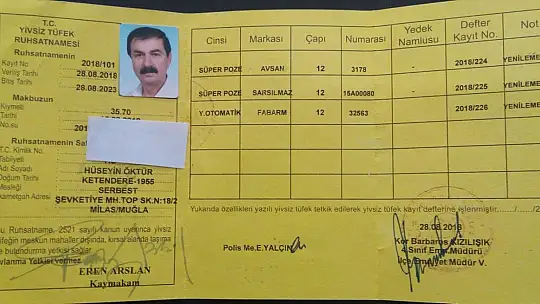 T.C.
YİVSİZ TÜFEK
RUHSATNAMESİ
Ruhsatnamenin
Kayıt No 2018/101
Veriliş Tarihi 28.08.2018
Bitiş Tarihi 28.08.2023
Makbuzun
Kıymeti 35.70
Tarihi
No.su 201
Ruhsatnamenin Sa
T.C. Kimlik No.
Tabiiyeti
Adı Soyadı HÜSEYİN ÖKTÜR
Doğum Tarihi KETENDERE-1955
Mesleği SERBEST
İkametgah Adresi ŞEVKETİYE MH.TOP SK.N:18/2
MİLAS/MUĞLA
Bu Ruhsatname, 2521 sayılı kanun uyarınca yivsiz
tüfeğin meskun mahaller dışında, kırsalarda taşıma
ve bulundurma yetkisi sağlar.
Avlanma Yetkisi vermez
EREN ARSLAN
Kaymakam
Cinsi Markası Çapı Numarası Yedek Namlusu Defter Kayıt No. Not
SÜPER POZE AVSAN 12 3178 - 2018/224 YENİLEME
SÜPER POZE SARSILMAZ 12 15A00080 - 2018/225 YENİLEME
Y.OTOMATİK FABARM 12 32563 - 2018/226 YENİLEME
Yukarıda özellikleri yazılı yivsiz tüfek tetkik edilerek yivsiz tüfek kayıt defterine işlenmiştir.
Polis Me.E.YALÇIN
28.08.2018
Kor Barbaros KIZILIŞIK
4.Sınıf Emn.Müdürü
İlçe Emniyet Müdür V.